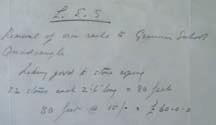 L. E. S
Removal of iron rails to Grammar School
Quadrangle
Making good to stone coping
32 stones each 2'6" long = 80 feet
80 feet @ 15/- = £60-0-0